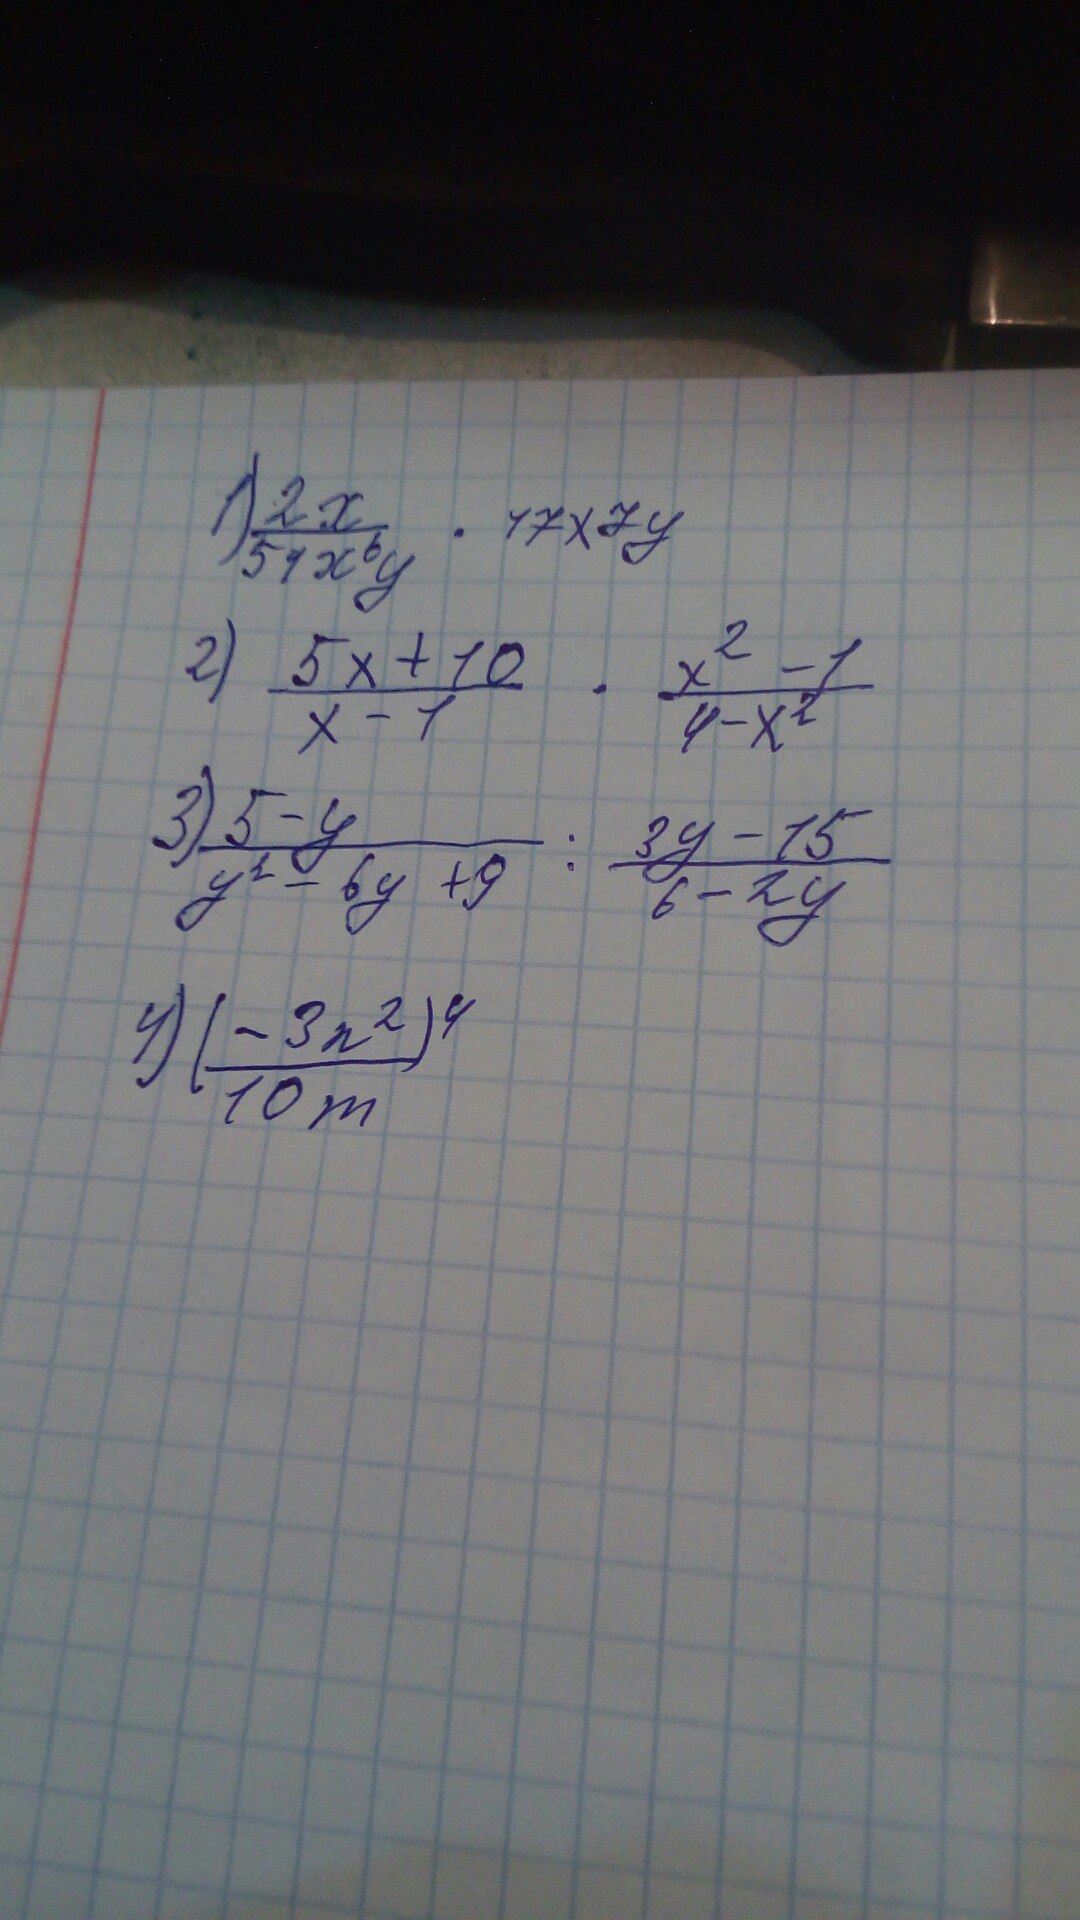 1) 2x / 51x⁶y · 17x7y
2) 5x+10 / x-1 · x²-1 / 4-x²
3) 5-y / y²-6y+9 : 3y-15 / 6-2y
4) (-3n² / 10m)⁴